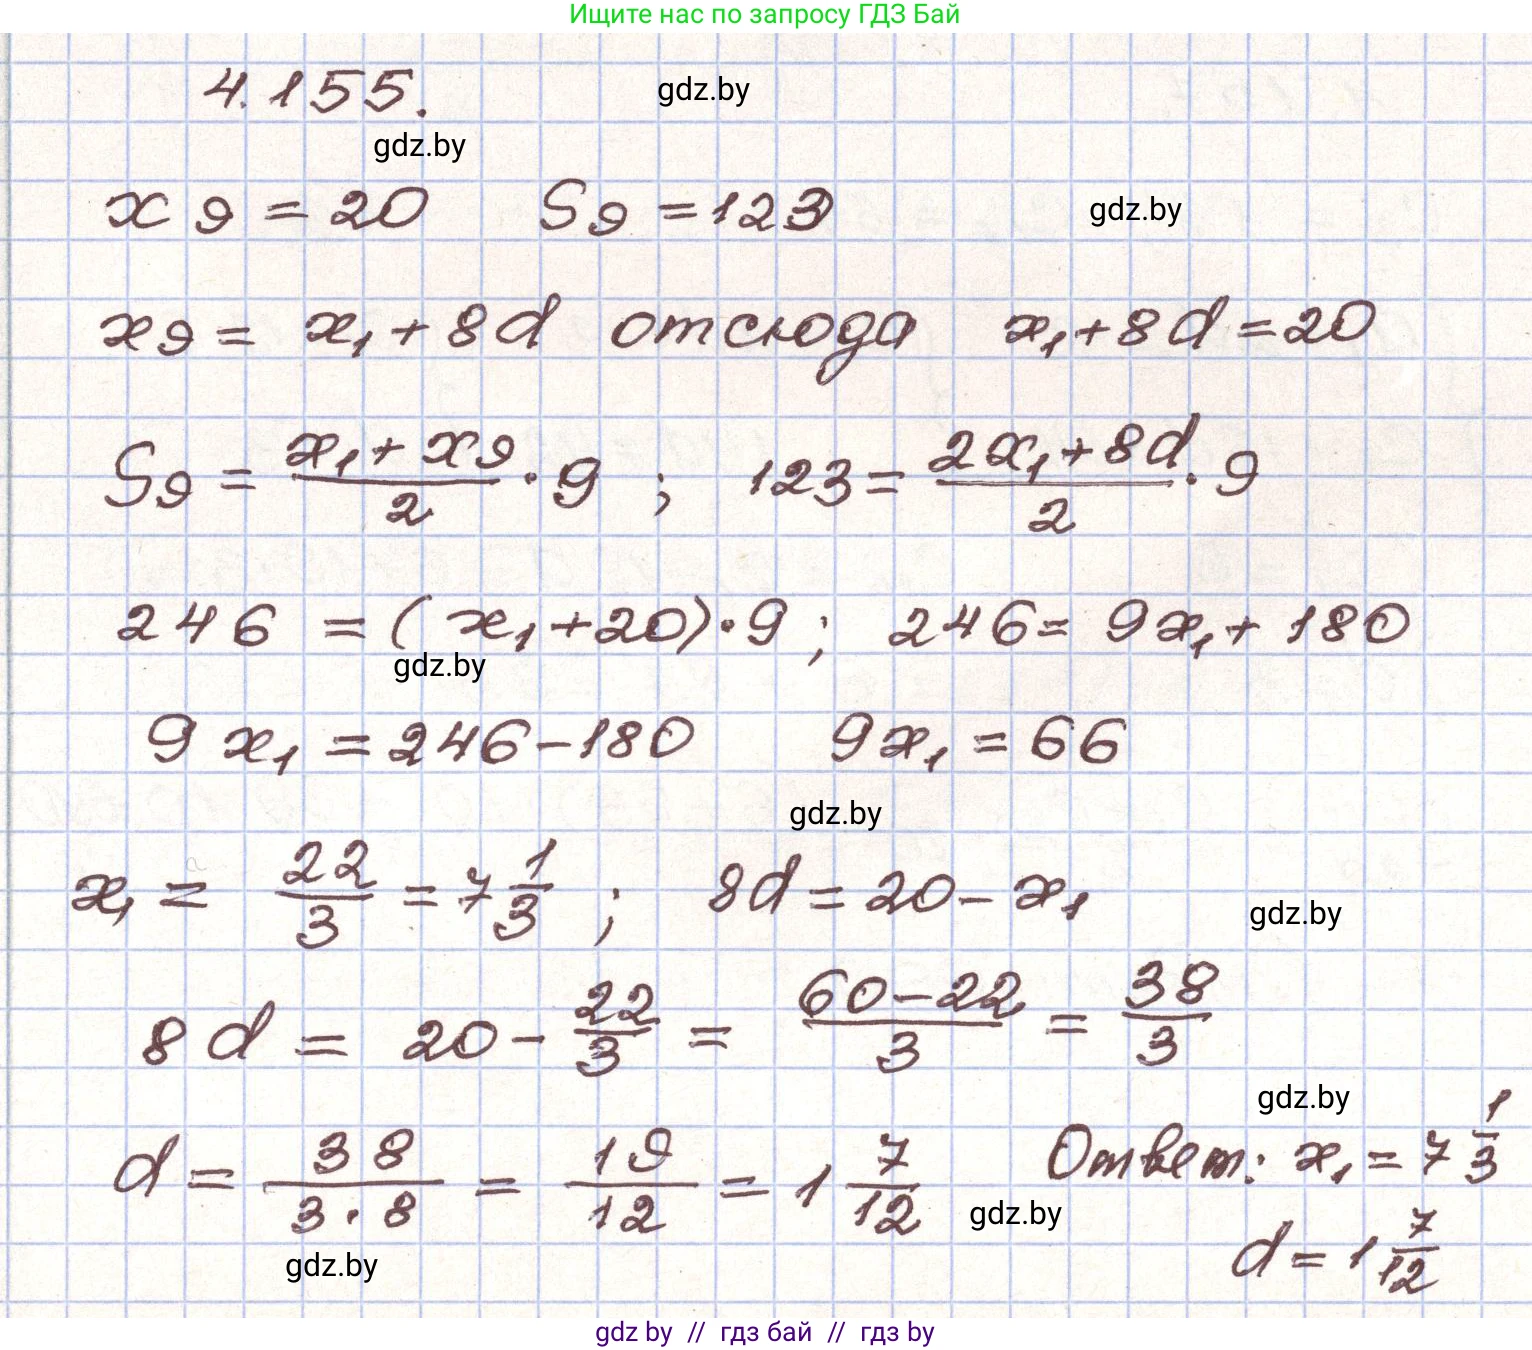 Ищите нас по запросу ГДЗ Бай
4.155.
gdz.by
gdz.by
x₉ = 20 S₉ = 123
gdz.by
x₉ = x₁ + 8d отсюда x₁ + 8d = 20
S₉ = (x₁ + x₉)/2 · 9 ; 123 = (2x₁ + 8d)/2 · 9
246 = (x₁ + 20) · 9 ; 246 = 9x₁ + 180
gdz.by
9x₁ = 246 - 180 9x₁ = 66
gdz.by
x₁ = 22/3 = 7 1/3 ; 8d = 20 - x₁
gdz.by
8d = 20 - 22/3 = (60 - 22)/3 = 38/3
gdz.by
d = 38/(3 · 8) = 19/12 = 1 7/12 Ответ: x₁ = 7 1/3
gdz.by
d = 1 7/12
gdz.by
gdz by // гдз бай // гдз by